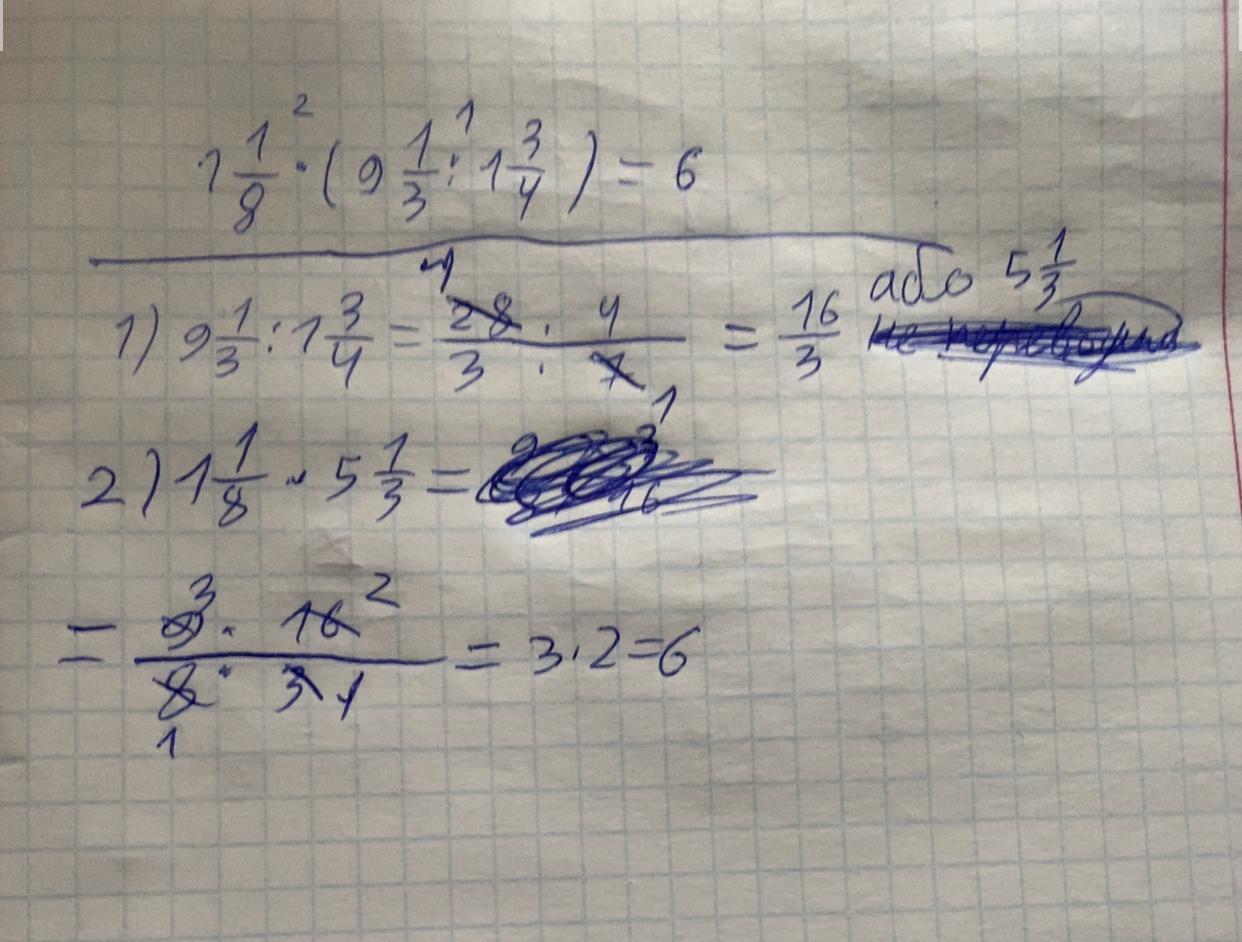 1 1/8 ·² (9 1/3 :¹ 1 3/4) = 6
1) 9 1/3 : 1 3/4 = 28/3 · 4/7 = 16/3 або 5 1/3
4 1
2) 1 1/8 · 5 1/3 =
= 9 · 16 / 8 · 3 = 3 · 2 = 6
3 2
1 1